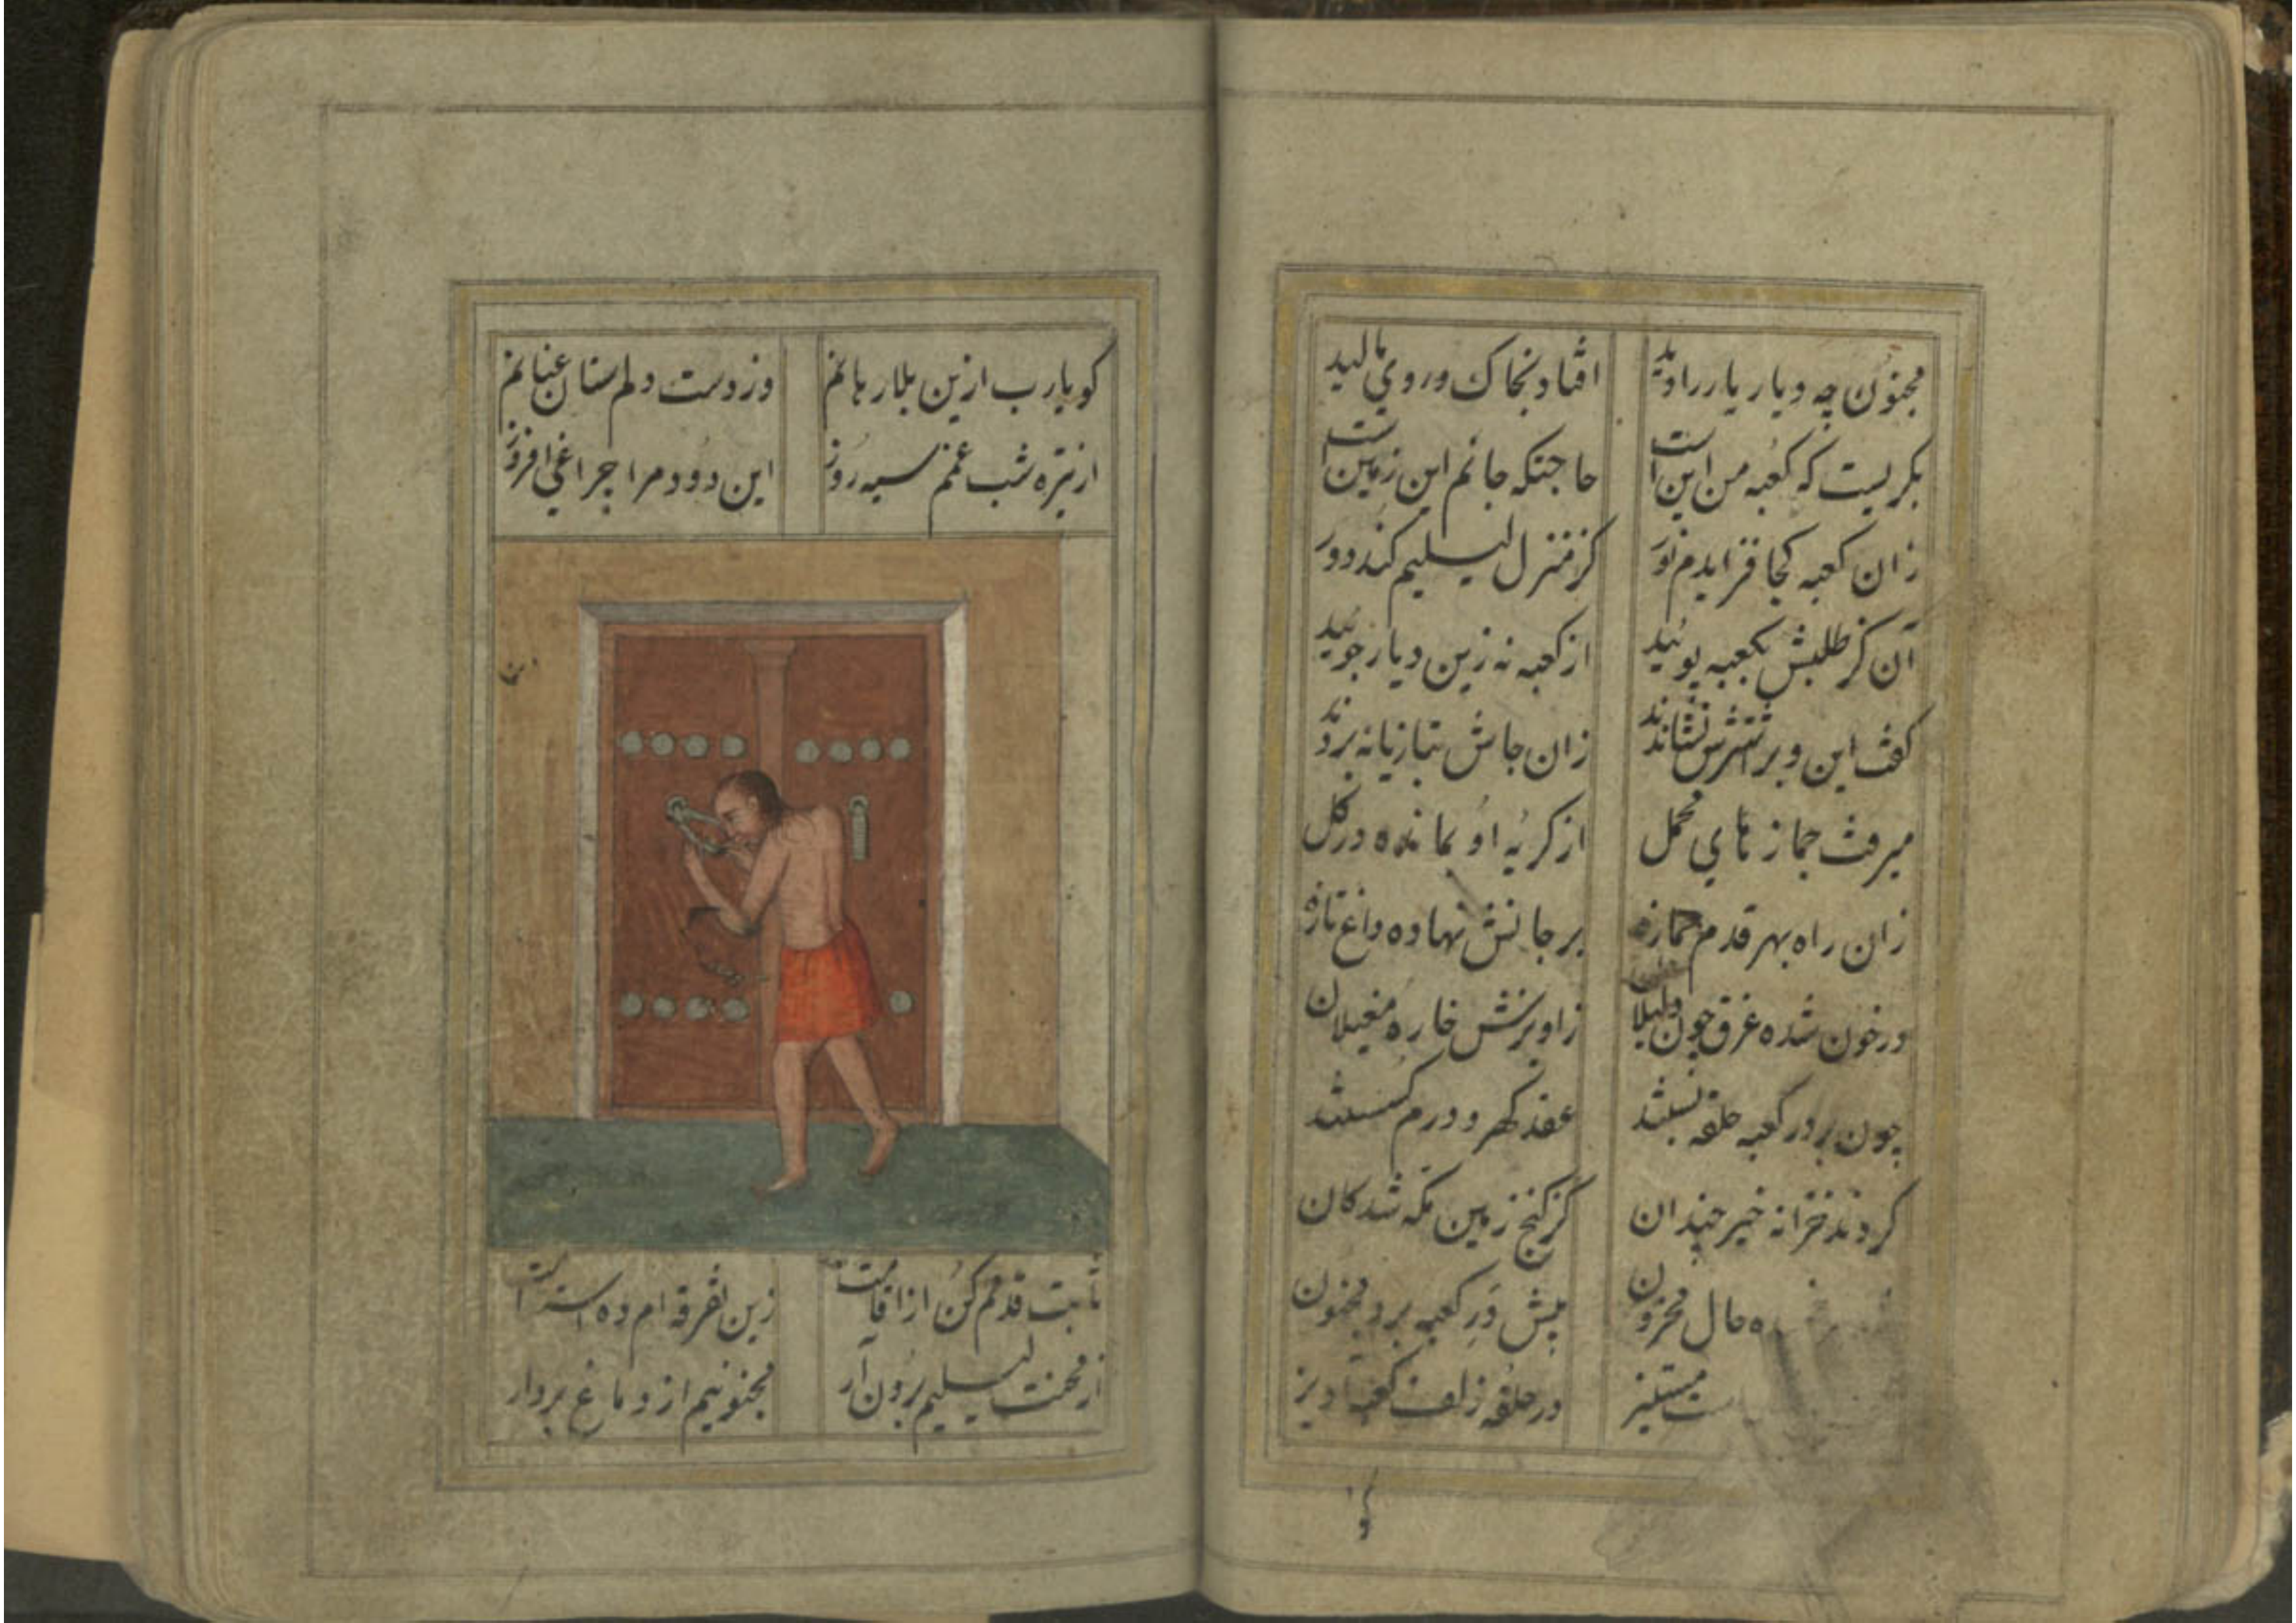 مجنون چه دیار یار را دید افتاد بخاک و روی مالید
بکریست که کعبه من این است حاجتکه جانم این زمین است
زان کعبه کجا فزایدم نور کز منزل لیلیم کند دور
آن کز طلبش بکعبه پوئید از کعبه نه زین دیار جوئید
کفت این و بر شترش نشاندند زان جاش بتازیانه
میرفت جماز های محمل از کریه او بمانده در کل
زان راه بهر قدم جمازه بر جانش نهاده داغ تازه
در خون شده غرق چون زاویزش خاره مغیلان
چون بر در کعبه حلقه بستند عقد کهر و درم کسستند
کردند خزانه خیر چندان کز کنج زمین مکه شد کان
حال محزون پیش در کعبه برد مجنون
مستیز در حلقه زلف کعبه آویز
کو
کو یارب ازین بلا رهانم وز دست دلم ستان عنانم
از تیره شب غمم سیه روز این دود مرا چراغی افروز
ثابت قدمم کن از اقامت زین تفرقه ام ده استقامت
از محنت لیلیم برون آر مجنونیم از دماغ بردار